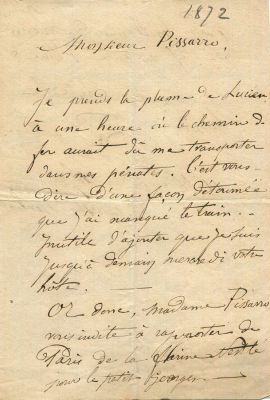 1872
Monsieur Pissarro,
Je prends la plume de Lucien
à une heure où le chemin de
fer aurait dû me transporter
dans mes pénates. C'est vous
dire d'une façon détournée
que j'ai manqué le train. -
Inutile d'ajouter que je suis
jusqu'à demain mercredi votre
hôte.
Or donc, Madame Pissarro
vous invite à rapporter de
Paris de la farine Nestlé
pour le petit Georges. -